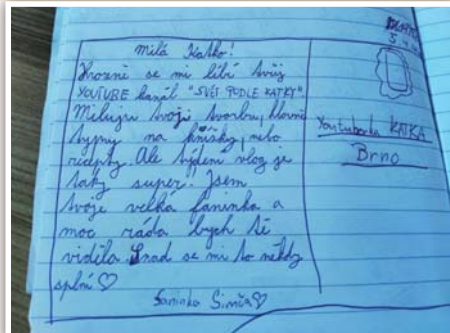 Milá Katko!
Hrozně se mi líbí tvůj
YOUTUBE kanál "SVĚT PODLE KATKY".
Miluju tvoji tvorbu, hlavně
typy na knížky, nebo
recepty. Ale týden vlog je
taky super. Jsem
tvoje velká faninka a
moc ráda bych tě
viděla. Snad se mi to někdy
splní ♡
faninka Simča ♡
Youtuberka KATKA
Brno